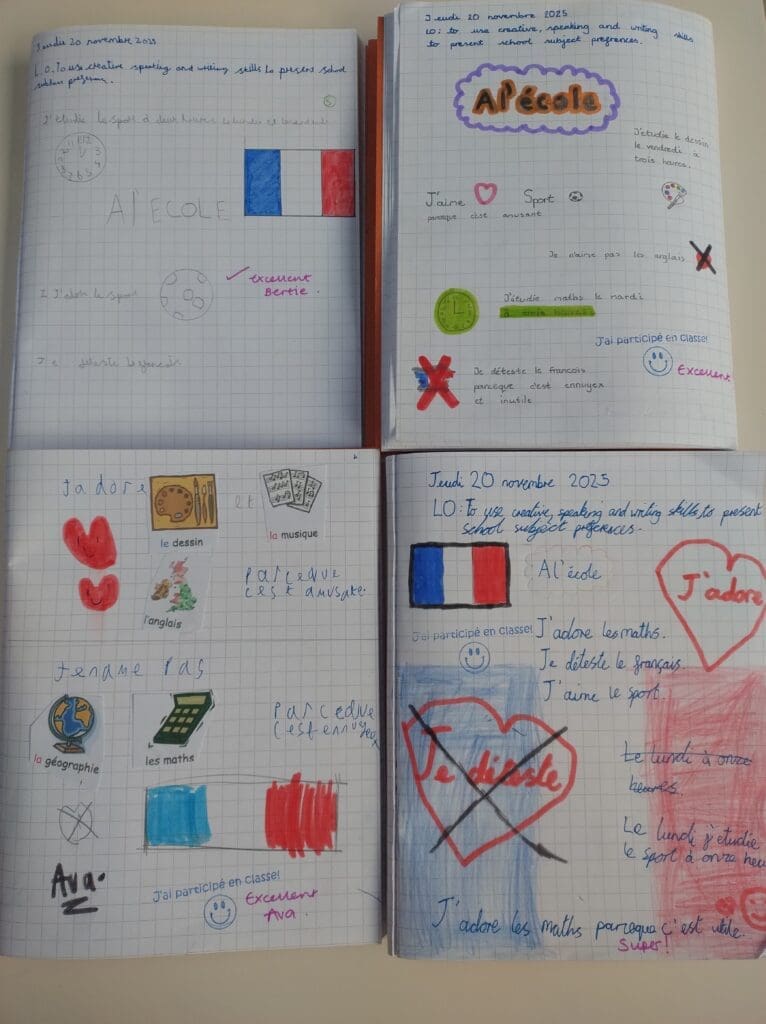 Jeudi 20 novembre 2025
L.O. To use creative speaking and writing skills to present school
subject
J'étudie le sport à deux heures
Al'ECOLE
J'adore le sport
✓ Excellent
Bertie.
déteste
Jeudi 20 novembre 2025
LO: to use creative, speaking and writing skills
to present school subject prefrences.
Al'école
J'étudie le dessin
le vendredi à
trois heures.
J'aime Sport
parceque c'est amusant
Je n'aime pas les anglais
J'étudie maths le mardi
à
J'ai participé en classe!
Excellent
Je déteste le francois
parceque c'est ennuyex
et inutile
Jadore et
le dessin
la musique
l'anglais
Parceque
cest amusate.
Jenaime Pas
la géographie
les maths
Parceque
Cest
Ava.
J'ai participé en classe!
Excellent
Ava.
Jeudi 20 novembre 2025
LO: To use creative, speaking and writing skills to present
school subject prefrences.
Al'école
J'adore
J'ai participé en classe!
J'adore les maths.
Je déteste le français.
J'aime le sport.
Je déteste
Le lundi à onze
heures.
Le lundi j'étudie
le sport à onze heu
J'adore les maths parceque c'est utile.
Super!